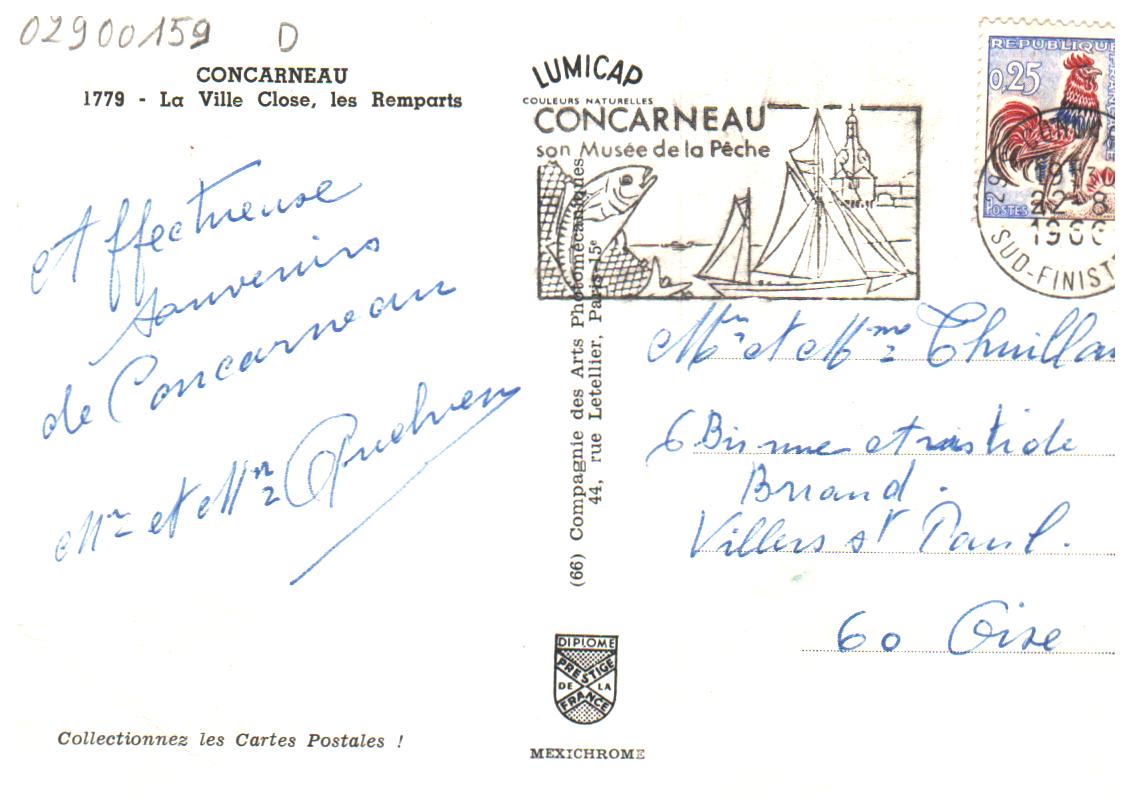 02900159 D
CONCARNEAU
1779 - La Ville Close, les Remparts
Affectueuse
souvenirs
de Concarneau
Mr et Mme
LUMICAP
COULEURS NATURELLES
CONCARNEAU
son Musée de la Pêche
REPUBLIQUE FRANÇAISE
0,25
POSTES
29
22-8
1966
SUD-FINIST
(66) Compagnie des Arts Photomécaniques
44, rue Letellier, Paris-15e
Mr et Mme Thuilla
6 Bis rue Aristide
Briand.
Villers st Paul.
60 Oise
DIPLOME
PRESTIGE
DE LA
FRANCE
Collectionnez les Cartes Postales !
MEXICHROME